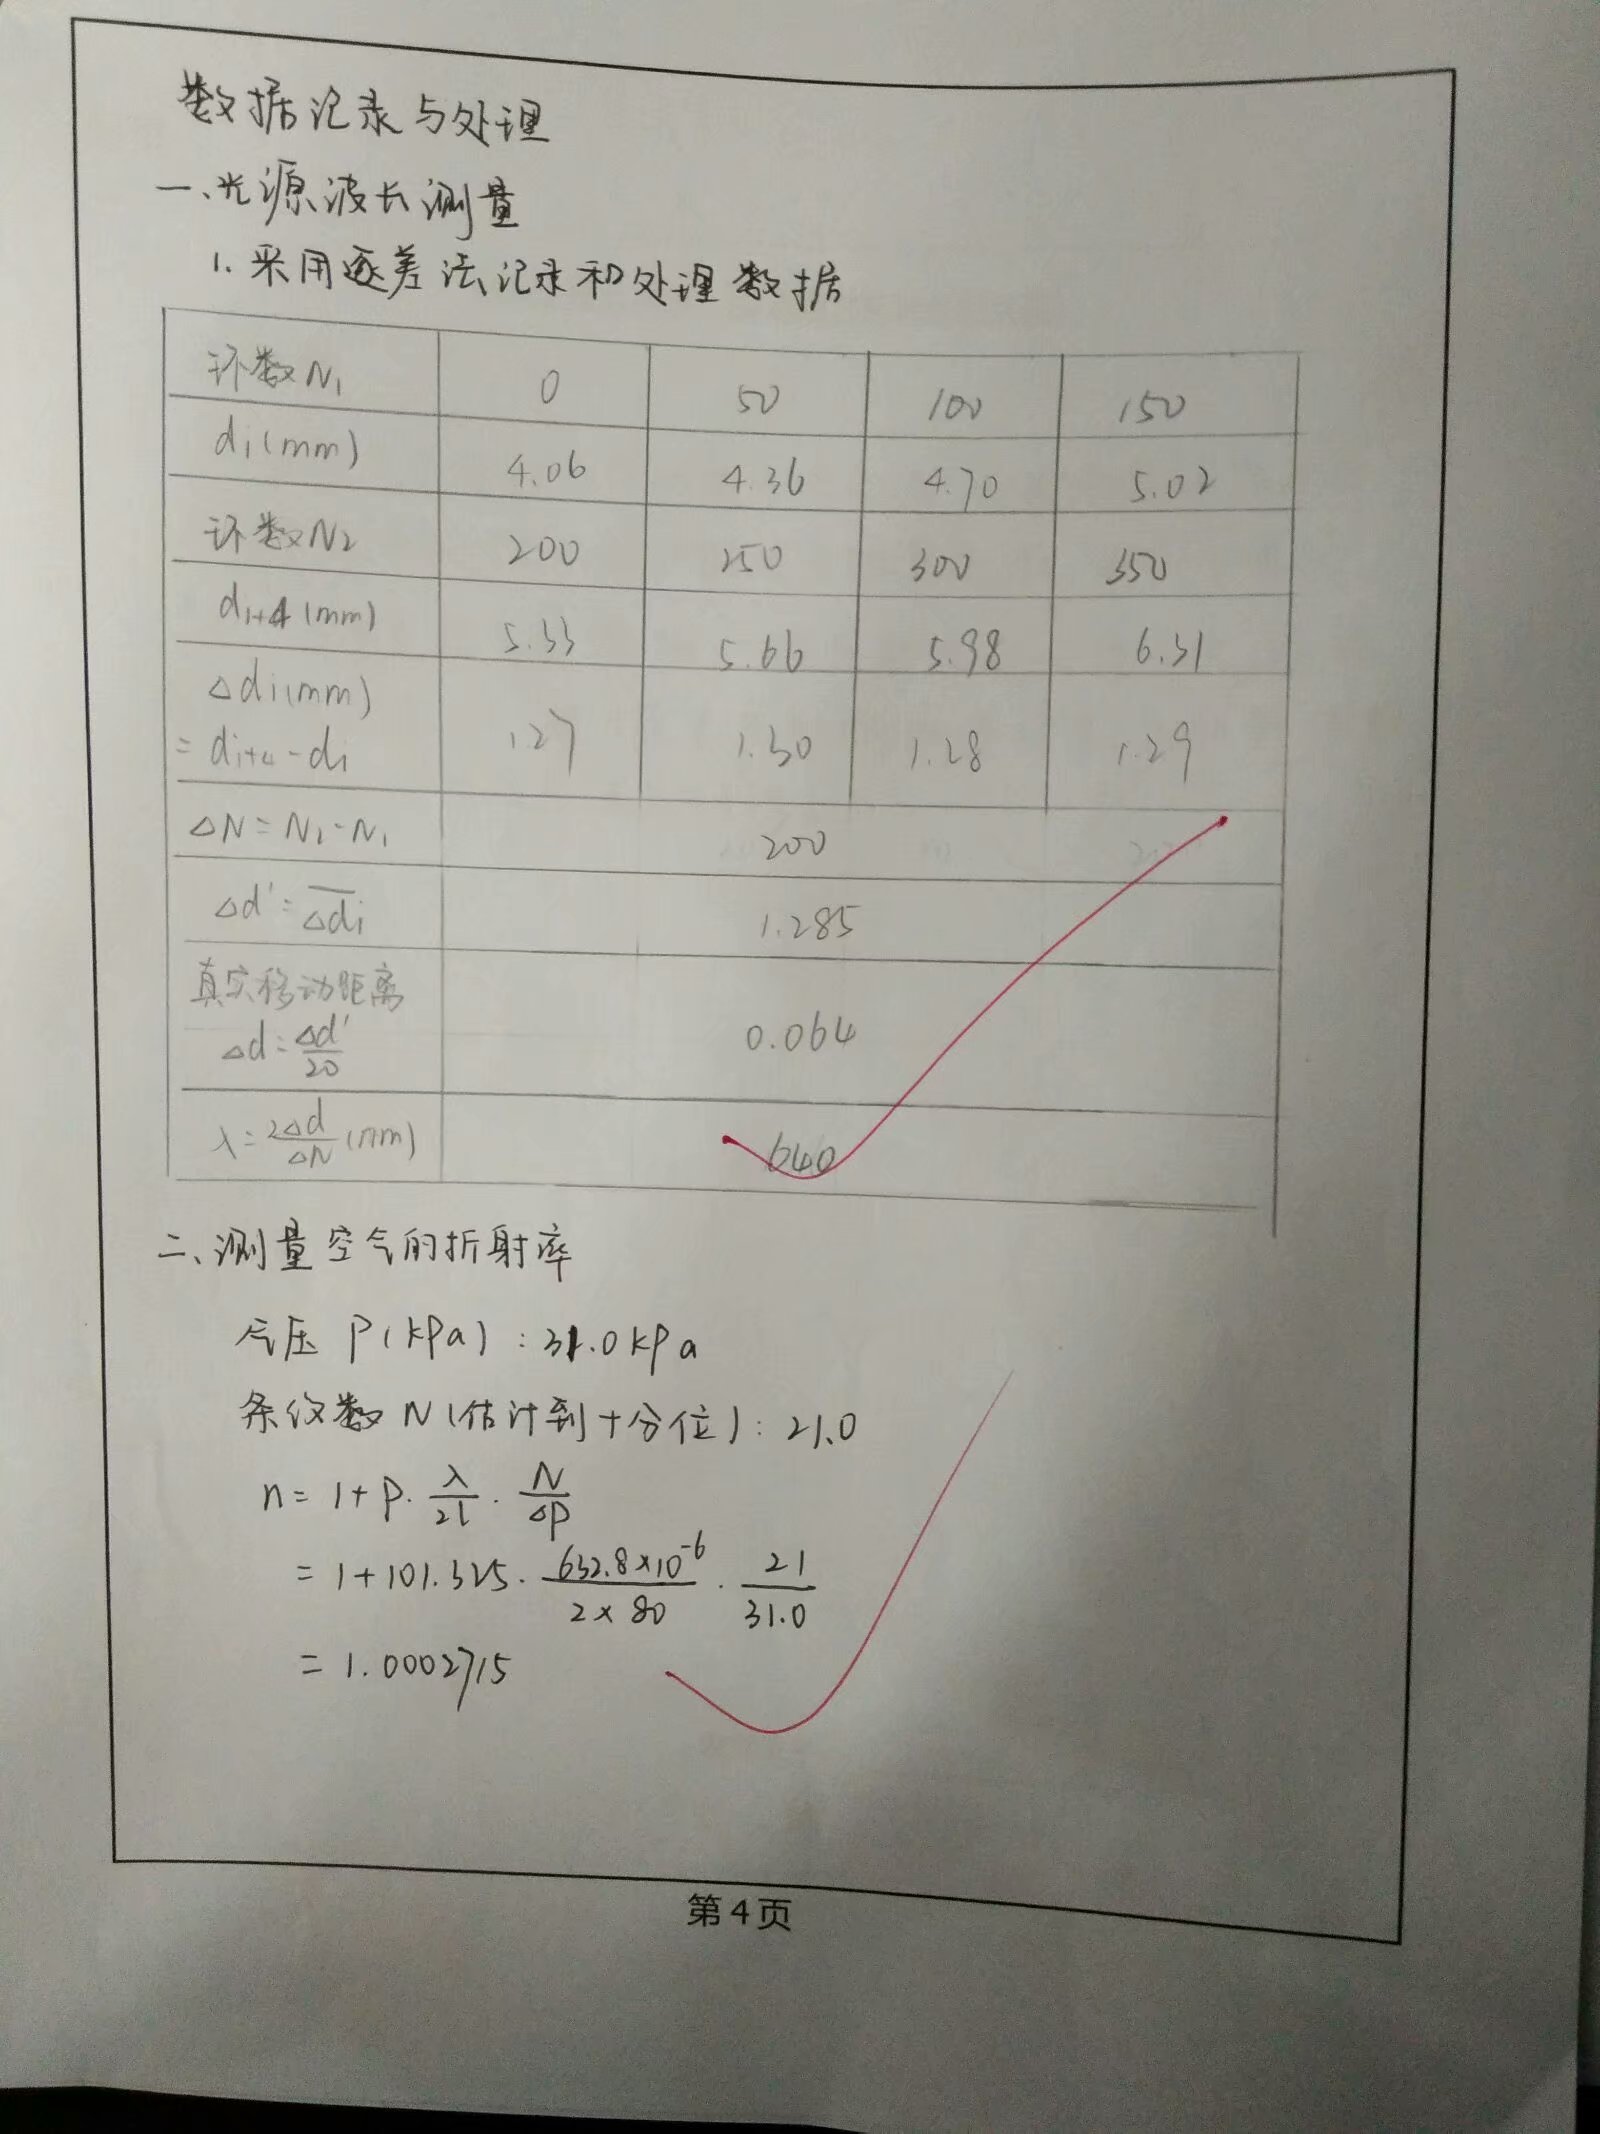 数据记录与处理
一、光源波长测量
1. 采用逐差法记录和处理数据
环数N₁ 0 50 100 150
di(mm) 4.06 4.36 4.70 5.02
环数N₂ 200 250 300 350
di+4(mm) 5.33 5.66 5.98 6.31
Δdi(mm)
= di+4 - di 1.27 1.30 1.28 1.29
ΔN = N₂ - N₁ 200
Δd' = \overline{Δdi} 1.285
真实移动距离
Δd = Δd'/20 0.064
λ = 2Δd/ΔN (nm) 640
二、测量空气的折射率
气压 P(kPa) : 31.0 kPa
条纹数 N(估计到十分位) : 21.0
n = 1 + P · λ/2l · N/ΔP
= 1 + 101.325 · 632.8×10⁻⁶/2×80 · 21/31.0
= 1.0002715
第4页